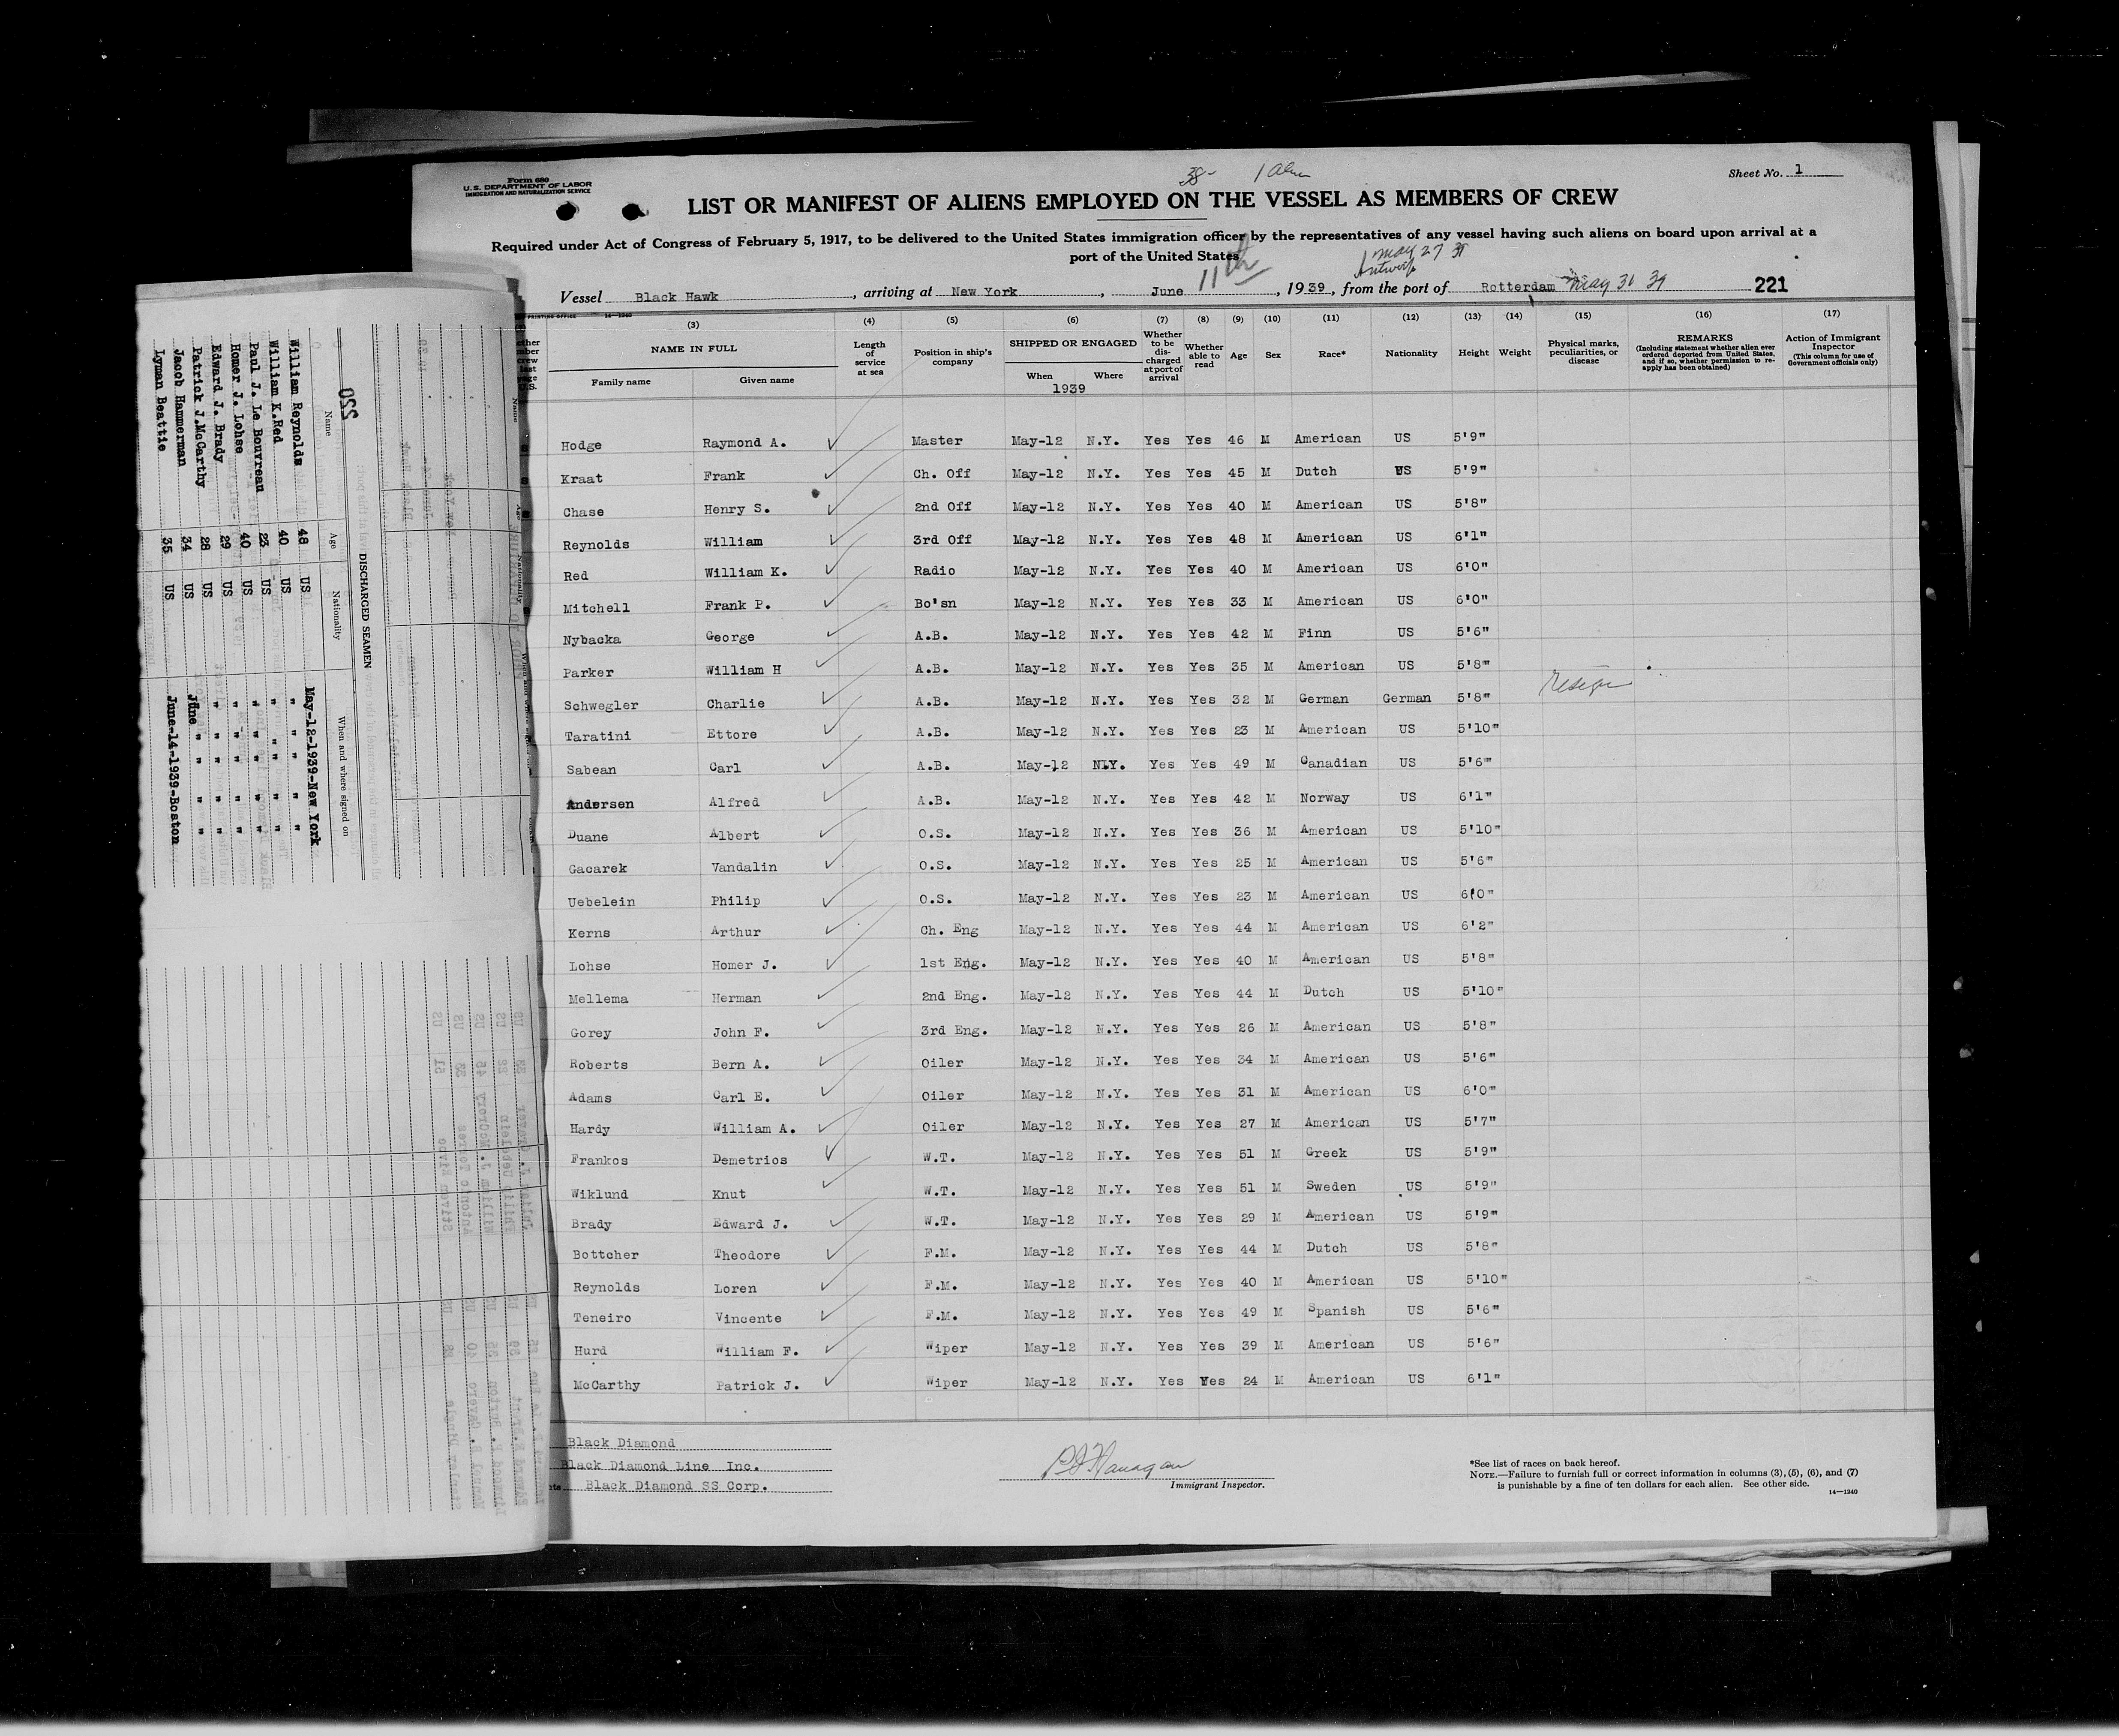 Form 680
U.S. DEPARTMENT OF LABOR
IMMIGRATION AND NATURALIZATION SERVICE
38- 1 Alien
Sheet No. 1
LIST OR MANIFEST OF ALIENS EMPLOYED ON THE VESSEL AS MEMBERS OF CREW
Required under Act of Congress of February 5, 1917, to be delivered to the United States immigration officer by the representatives of any vessel having such aliens on board upon arrival at a
port of the United States
May 27 39
Antwerp
Vessel Black Hawk, arriving at New York, June 11th, 1939, from the port of Rotterdam May 31 39 221
PRINTING OFFICE 14-1240
(3) (4) (5) (6) (7) (8) (9) (10) (11) (12) (13) (14) (15) (16) (17)
NAME IN FULL
Family name Given name
Length of service at sea
Position in ship's company
SHIPPED OR ENGAGED
When Where
1939
Whether to be discharged at port of arrival
Whether able to read
Age
Sex
Race*
Nationality
Height
Weight
Physical marks, peculiarities, or disease
REMARKS
(Including statement whether alien ever ordered deported from United States, and if so, whether permission to re-apply has been obtained)
Action of Immigrant Inspector
(This column for use of Government officials only)
Hodge Raymond A. Master May-12 N.Y. Yes Yes 46 M American US 5'9"
Kraat Frank Ch. Off May-12 N.Y. Yes Yes 45 M Dutch US 5'9"
Chase Henry S. 2nd Off May-12 N.Y. Yes Yes 40 M American US 5'8"
Reynolds William 3rd Off May-12 N.Y. Yes Yes 48 M American US 6'1"
Red William K. Radio May-12 N.Y. Yes Yes 40 M American US 6'0"
Mitchell Frank P. Bo'sn May-12 N.Y. Yes Yes 33 M American US 6'0"
Nybacka George A.B. May-12 N.Y. Yes Yes 42 M Finn US 5'6"
Parker William H A.B. May-12 N.Y. Yes Yes 35 M American US 5'8"
Schwegler Charlie A.B. May-12 N.Y. Yes Yes 32 M German German 5'8"
Taratini Ettore A.B. May-12 N.Y. Yes Yes 23 M American US 5'10"
Sabean Carl A.B. May-12 N.Y. Yes Yes 49 M Canadian US 5'6"
Andersen Alfred A.B. May-12 N.Y. Yes Yes 42 M Norway US 6'1"
Duane Albert O.S. May-12 N.Y. Yes Yes 36 M American US 5'10"
Gacarek Vandalin O.S. May-12 N.Y. Yes Yes 25 M American US 5'6"
Uebelein Philip O.S. May-12 N.Y. Yes Yes 23 M American US 6'0"
Kerns Arthur Ch. Eng May-12 N.Y. Yes Yes 44 M American US 6'2"
Lohse Homer J. 1st Eng. May-12 N.Y. Yes Yes 40 M American US 5'8"
Mellema Herman 2nd Eng. May-12 N.Y. Yes Yes 44 M Dutch US 5'10"
Gorey John F. 3rd Eng. May-12 N.Y. Yes Yes 26 M American US 5'8"
Roberts Bern A. Oiler May-12 N.Y. Yes Yes 34 M American US 5'6"
Adams Carl E. Oiler May-12 N.Y. Yes Yes 31 M American US 6'0"
Hardy William A. Oiler May-12 N.Y. Yes Yes 27 M American US 5'7"
Frankos Demetrios W.T. May-12 N.Y. Yes Yes 51 M Greek US 5'9"
Wiklund Knut W.T. May-12 N.Y. Yes Yes 51 M Sweden US 5'9"
Brady Edward J. W.T. May-12 N.Y. Yes Yes 29 M American US 5'9"
Bottcher Theodore F.M. May-12 N.Y. Yes Yes 44 M Dutch US 5'8"
Reynolds Loren F.M. May-12 N.Y. Yes Yes 40 M American US 5'10"
Teneiro Vincente F.M. May-12 N.Y. Yes Yes 49 M Spanish US 5'6"
Hurd William F. Wiper May-12 N.Y. Yes Yes 39 M American US 5'6"
McCarthy Patrick J. Wiper May-12 N.Y. Yes Yes 24 M American US 6'1"
Black Diamond
Black Diamond Line Inc.
Black Diamond SS Corp.
P J Flanagan
Immigrant Inspector.
*See list of races on back hereof.
NOTE.—Failure to furnish full or correct information in columns (3), (5), (6), and (7)
is punishable by a fine of ten dollars for each alien. See other side.
14—1240
220
DISCHARGED SEAMEN
Name Age Nationality When and where signed on
William Reynolds 48 US May-12-1939-New York
William K.Red 40 US " " " "
Paul J. Le Bouvreau 23 US " " " "
Homer J. Lohse 40 US " " " "
Edward J. Brady 29 US " " " "
Patrick J.McCarthy 28 US June " " "
Jacob Hammerman 34 US
Lyman Beattie 35 US June-14-1939-Boston